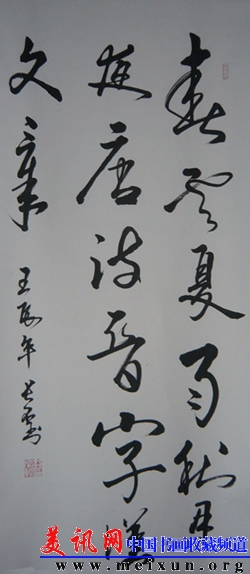 春云夏雨秋月
夜唐诗晋字漢
文章 壬辰年
美讯网 中国书画收藏频道
www.meixun.org